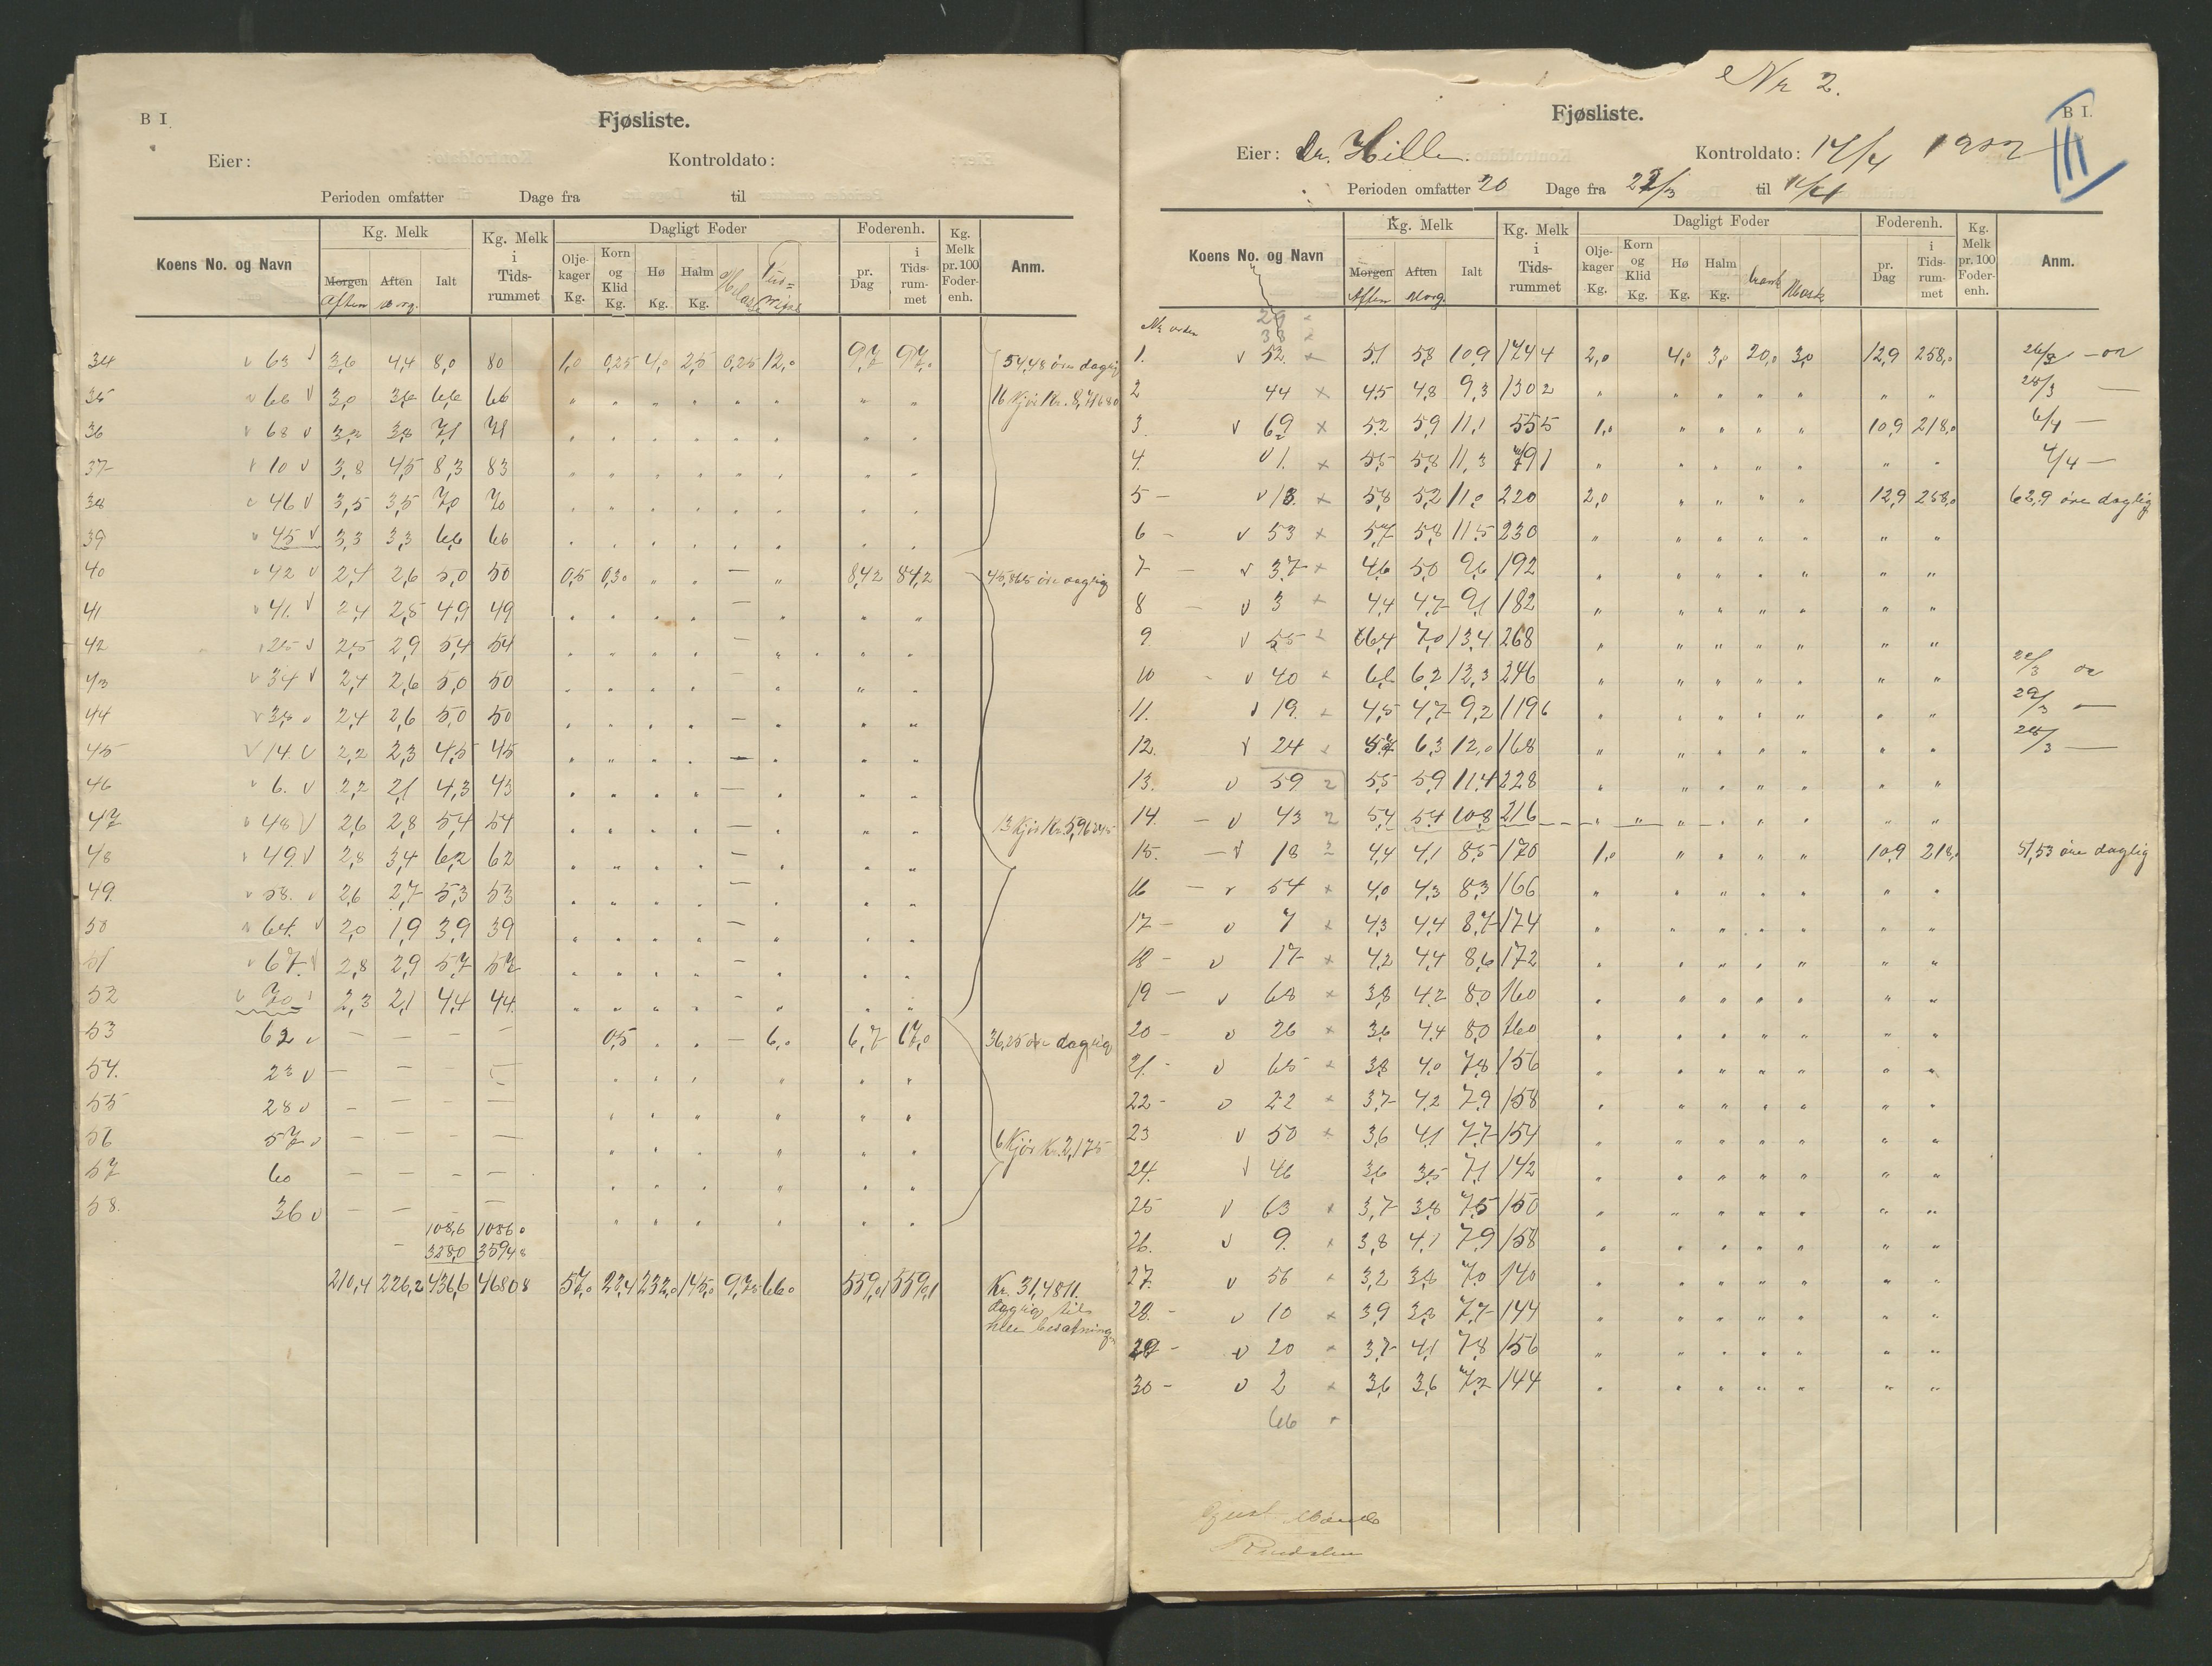 B I.
Fjøsliste.
Eier:
Kontroldato:
Perioden omfatter Dage fra til
Koens No. og Navn
Kg. Melk
Morgen Aften Ialt
Aften Morg.
Kg. Melk i Tidsrummet
Dagligt Foder
Oljekager Kg. Korn og Klid Kg. Hø Kg. Halm Kg.
Foderenh.
pr. Dag i Tidsrummet
Kg. Melk pr. 100 Foderenh.
Anm.
34 v 63 v 3,6 4,4 8,0 80 1,0 0,25 4,0 2,5 0,25 12,0 9,7 97,0 54,48 øre daglig
35 v 66 v 3,0 3,6 6,6 66 " " " " " " " "
36 v 68 v 3,3 3,8 7,1 71 " " " " " " " "
37 v 10 v 3,8 4,5 8,3 83 " " " " " " " "
38 v 46 v 3,5 3,5 7,0 70 " " " " " " " "
39 v 45 v 3,3 3,3 6,6 66 " " " " " " " "
40 v 42 v 2,4 2,6 5,0 50 0,5 0,30 " " — " 8,42 84,2 45,865 øre daglig
41 v 41. v 2,4 2,5 4,9 49 " " " " — " " "
42 v 25 v 2,5 2,9 5,4 54 " " " " — " " "
43 v 34 v 2,4 2,6 5,0 50 " " " " — " " "
44 v 35 v 2,4 2,6 5,0 50 " " " " — " " "
45 v 14 v 2,2 2,3 4,5 45 " " " " — " " "
46 v 6. v 2,2 2,1 4,3 43 " " " " — " " "
47 v 48 v 2,6 2,8 5,4 54 " " " " — " " "
48 v 49 v 2,8 3,4 6,2 62 " " " " — " " "
49. v 58. v 2,6 2,7 5,3 53 " " " " — " " "
50 v 64. v 2,0 1,9 3,9 39 " " " " — " " "
51 v 67. v 2,8 2,9 5,7 57 " " " " — " " "
52 v 70 v 2,3 2,1 4,4 44. " " " " — " " "
53 62 v — — — — 0,5 " " — 6,0 6,7 67,0 36,25 øre daglig
54. 23 v — — — " " " " " "
55 28 v — — — — " " " " " "
56 57 v — — — — " " " " " " 6 Kjør Kr. 2,175
57 60 — — — — " " " " " "
58. 36 v — — — — " " " " " "
108,6 1086 0
328,0 3594 8
210,4 226,2 436,6 4680 8 57,0 23,4 232,0 145,0 9,75 66 0 559,01 5590,1 Kr. 31,4811.
daglig til
hele besætningen
Nr 2.
B I.
III
Fjøsliste.
Eier: Dr. Hille. Kontroldato: 14/4 1902
Perioden omfatter 20 Dage fra 22/3 til 14/4
Koens No. og Navn
Kg. Melk
Morgen Aften Ialt
Aften Morg.
Kg. Melk i Tidsrummet
Dagligt Foder
Oljekager Kg. Korn og Klid Kg. Hø Kg. Halm Kg. Mask
Foderenh.
pr. Dag i Tidsrummet
Kg. Melk pr. 100 Foderenh.
Anm.
29
38
1. v 52 x 5,1 5,8 10,9 174 4 2,0 4,0 3,0 20,0 3,0 12,9 258,0
2 44 x 4,5 4,8 9,3 130 2 " " " " " " " 28/3 —
3. v 69 x 5,2 5,9 11,1 55 5 1,0 " " " " 10,9 218,0 6/4 —
4. v 1. x 5,5 5,8 11,3 79 1 " " " " " " " 4/4 —
5 — v 13. x 5,8 5,2 11,0 220 2,0 " " " " 12,9 258,0 62,9 øre daglig
6 — v 53 x 5,7 5,8 11,5 230 " " " " " " "
7 — v 37 x 4,6 5,0 9,6 192 " " " " " " "
8 — v 3 x 4,4 4,7 9,1 182 " " " " " " "
9. v 55 x 6,4 7,0 13,4 268 " " " " " " "
10 - v 40 x 6,1 6,2 12,3 246 " " " " " " "
11. v 19. x 4,5 4,7 9,2 119 6 " " " " " " " 29/3 —
12. v 24 x 5,7 6,3 12,0 168 " " " " " " " 28/3 —
13. v 59 x 5,5 5,9 11,4 228 " " " " " " "
14. — v 43 x 5,4 5,4 10,8 216 " " " " " " " "
15. — v 18 x 4,4 4,1 8,5 170 1,0 " " " " 10,9 218,0 51,53 øre daglig
16 — v 54 x 4,0 4,3 8,3 166 " " " " " " "
17 — v 7 x 4,3 4,4 8,7 174 " " " " " " "
18 - v 17 x 4,2 4,4 8,6 172 " " " " " " "
19 — v 68 x 3,8 4,2 8,0 160 " " " " " " "
20 — v 26 x 3,6 4,4 8,0 160 " " " " " " "
21. - v 65 x 3,8 4,0 7,8 156 " " " " " " "
22 - v 22 x 3,7 4,2 7,9 158 " " " " " " "
23 v 50 x 3,6 4,1 7,7 154 " " " " " " "
24. v 46 3,6 3,5 7,1 142 " " " " " " "
25 v 63 x 3,7 3,8 7,5 150 " " " " " " "
26. v 9. x 3,8 4,1 7,9 158 " " " " " " "
27. v 56 x 3,2 3,8 7,0 140 " " " " " " "
28. - v 10 x 3,9 3,8 7,7 144 " " " " " " "
29 - v 20 x 3,7 4,1 7,8 156 " " " " " " "
30 - v 2 x 3,6 3,6 7,2 144 " " " " " " "
66 x